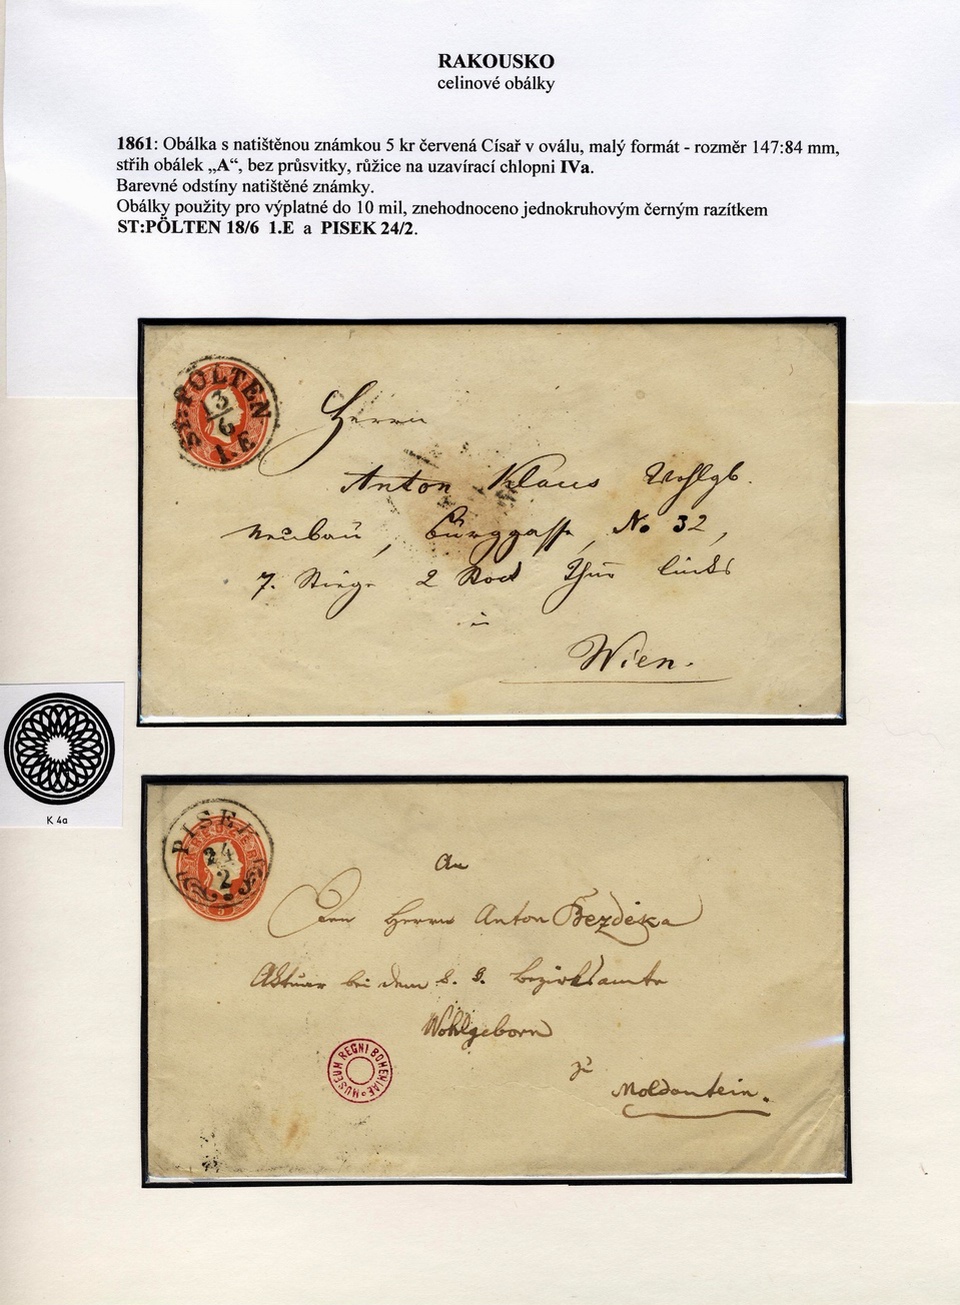 RAKOUSKO
celinové obálky
1861: Obálka s natištěnou známkou 5 kr červená Císař v oválu, malý formát - rozměr 147:84 mm,
střih obálek „A“, bez průsvitky, růžice na uzavírací chlopni IVa.
Barevné odstíny natištěné známky.
Obálky použity pro výplatné do 10 mil, znehodnoceno jednokruhovým černým razítkem
ST:PÖLTEN 18/6 1.E a PISEK 24/2.
ST:PÖLTEN
13/6
1.E
Herrn
Anton Klaus Wohlgb.
Neubau, Burggasse, No 32,
7. Stiege 2 Stock Thür links
in
Wien.
K 4a
PISEK
24
2
An
Den Herrn Anton Bezdèka
Aktuar bei dem k. k. Bezirksamte
Wohlgeborn
MUSEUM REGNI BOHEMIAE
zu
Moldautein.